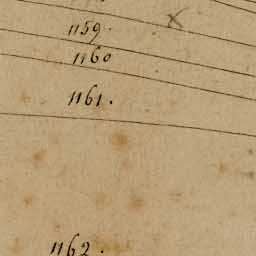 1159.
1160
1161.
1162.